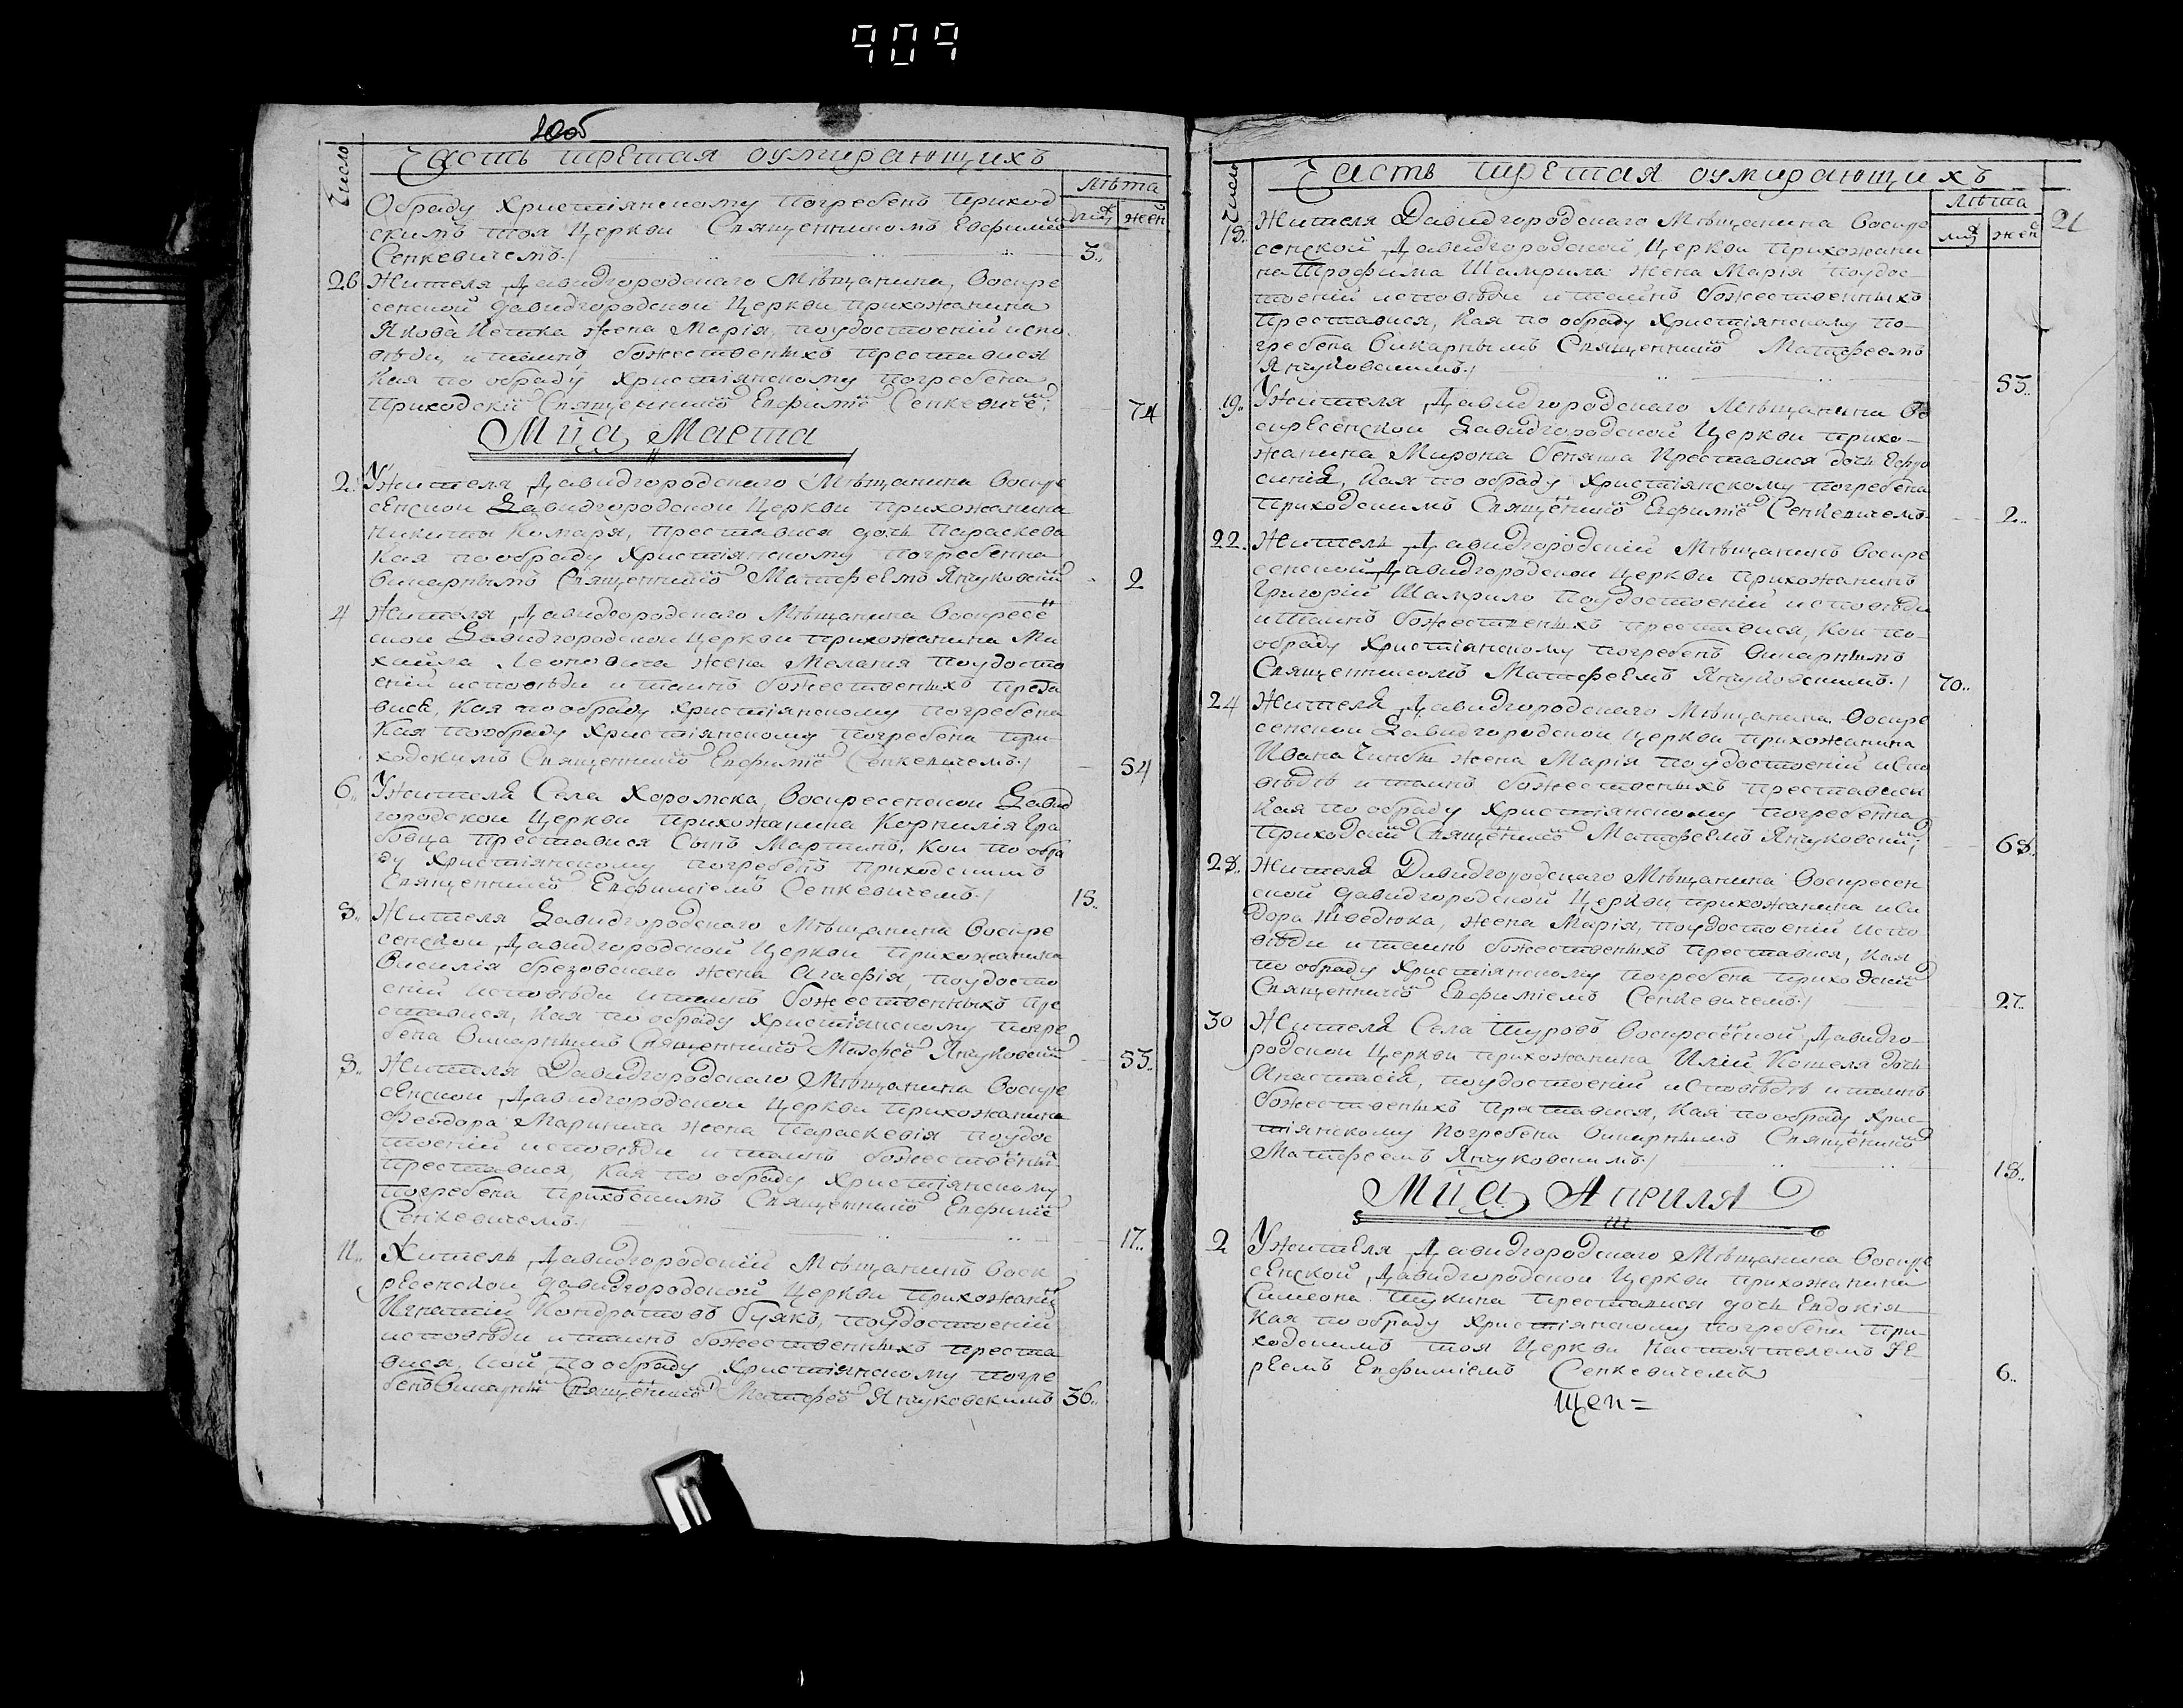 909
20об
Часть третая оумирающихъ
Число
Лѣта
муж жен
Обраду Христіянскому Погребенъ Приход
скимъ тоя Церкви Священникомъ Евфиміе
Сенкевичемъ. 3..
26 Жителя Давидгородскаго Мѣщанина, Воскре
сенской Давидгородской Церкви прихожанина
Якова жена Марія, поудостоеній испо
вѣди, и таинъ божественыхъ преставися
Кая по обраду Христіянскому погребена
Приходскі Священнико Евфиміе Сенкевиче. 74
Мца Марта
2. У Жителя Давидгородскаго Мѣщанина Воскре
сенской Давидгородской Церкви Прихожанина
Никиты Комаря, преставися дочь Параскева
Кая по обраду Христіянскому погребенна
Викарнымъ Священнико Матфеемъ Янчуковски 2
4 Жителя Давидгородскаго Мѣщанина Воскресе
ской Давидгородской Церкви прихожанина Ми
хайла Леоновича жена Меланія поудосто
еній исповѣди и таинъ божественыхъ преста
вися, Кая по обраду Христіянскому погребена
Кая пообраду Христіянскому погребена при
ходскимъ Священнико Евфиміе Сенкевичемъ. 54
6.. У Жителя Села Хоромска, Воскресенской Давид
городской Церкви прихожанина Корнилія Гра
бовца преставися Сынъ Мартинъ, Кои по обра
ду Христіянскому погребенъ приходскимъ
Священнико Евфиміемъ Сенкевичемъ. 18..
8.. Жителя Давидгородскаго Мѣщанина Воскре
сенской Давидгородской Церкви Прихожанина
Василія брезовскаго жена Агафія, поудосто
еній исповѣди и таинъ божественныхъ пре
ставися, Кая по обраду Христіянскому погре
бена Викарнымъ Священнико Матфее Янчуковски 53..
8.. Жителя Давидгородскаго Мѣщанина Воскре
сенской Давидгородской Церкви прихожанина
Феодора Маринича жена Параскевія поудос
тоеній исповѣди и таинъ божествены
преставися, Кая по обраду Христіянскому
погребена приходскимъ Священнико Евфиміе
Сенкевичемъ. 17..
11.. Житель Давидгородскій Мѣщанинъ Воск
ресенской Давидгородской Церкви прихожани
Игнатій Кондратовъ буякъ, поудостоеній
исповѣди и таинъ божественныхъ преста
вися, Кой по обраду Христіянскому погре
бенъ Викарны Священнико Матфее Янчуковскимъ 36..
Часть третая оумирающихъ
Число
Лѣта
муж жен
21
18. Жителя Давидгородскаго Мѣщанина Воскре
сенской Давидгородской Церкви прихожани
на Трофима Шамрила жена Марія поудос
тоеній исповѣди и таинъ божественныхъ
преставися, Кая по обраду Христіянскому по
гребена Викарнымъ Священнико Матфеемъ
Янчуковскимъ. 55..
19.. У Жителя Давидгородскаго Мѣщанина Во
скресенской Давидгородской Церкви прихо
жанина Мирона беняша Преставися дочь Ефро
синія, Кая по обраду Христіянскому погребена
приходскимъ Священико Евфиміе Сенкевичемъ. 2..
22. Житель Давидгородскій Мѣщанинъ Воскре
сенской Давидгородской Церкви Прихожанинъ
Григорій Шамрило поудостоеній исповѣди
и таинъ божественыхъ преставися, Кои по
обраду Христіянскому погребенъ Викарнымъ
Священникомъ Матфеемъ Янчуковскимъ. 70..
24 Жителя Давидгородскаго Мѣщанина Воскре
сенской Давидгородской Церкви прихожанина
Ивана жена Марія поудостоеній испо
вѣдь и таинъ божественыхъ преставися
Кая по обраду Христіянскому погребенна
приходски Священико Матфеемъ Янчуковски. 68.
28.. Жителя Давидгородскаго Мѣщанина Воскресен
ской Давидгородской Церкви прихожанина иси
дора жена Марія, поудостоеній испо
вѣди и таинъ божественыхъ преставися, Кая
по обраду Христіянскому погребена приходски
Священнико Евфиміемъ Сенкевичемъ. 27..
30 Жителя Села Туровъ Воскресеной Давидго
родской Церкви прихожанина Иліи Котеля дочь
Анастасія, поудостоеній исповѣдь и таинъ
божественыхъ преставися, Кая по обраду Хрис
тіянскому Погребена Викарнымъ Священико
Матфеемъ Янчуковскимъ. 18..
Мца Априля
2 У Жителя Давидгородскаго Мѣщанина Воскре
сенской Давидгородской Церкви прихожанина
Симеона Щукина преставися дочь Евдокія
Кая по обраду Христіянскому погребена при
ходскимъ тоя Церкви Настоятелемъ Іе
реемъ Евфиміемъ Сенкевичемъ 6..